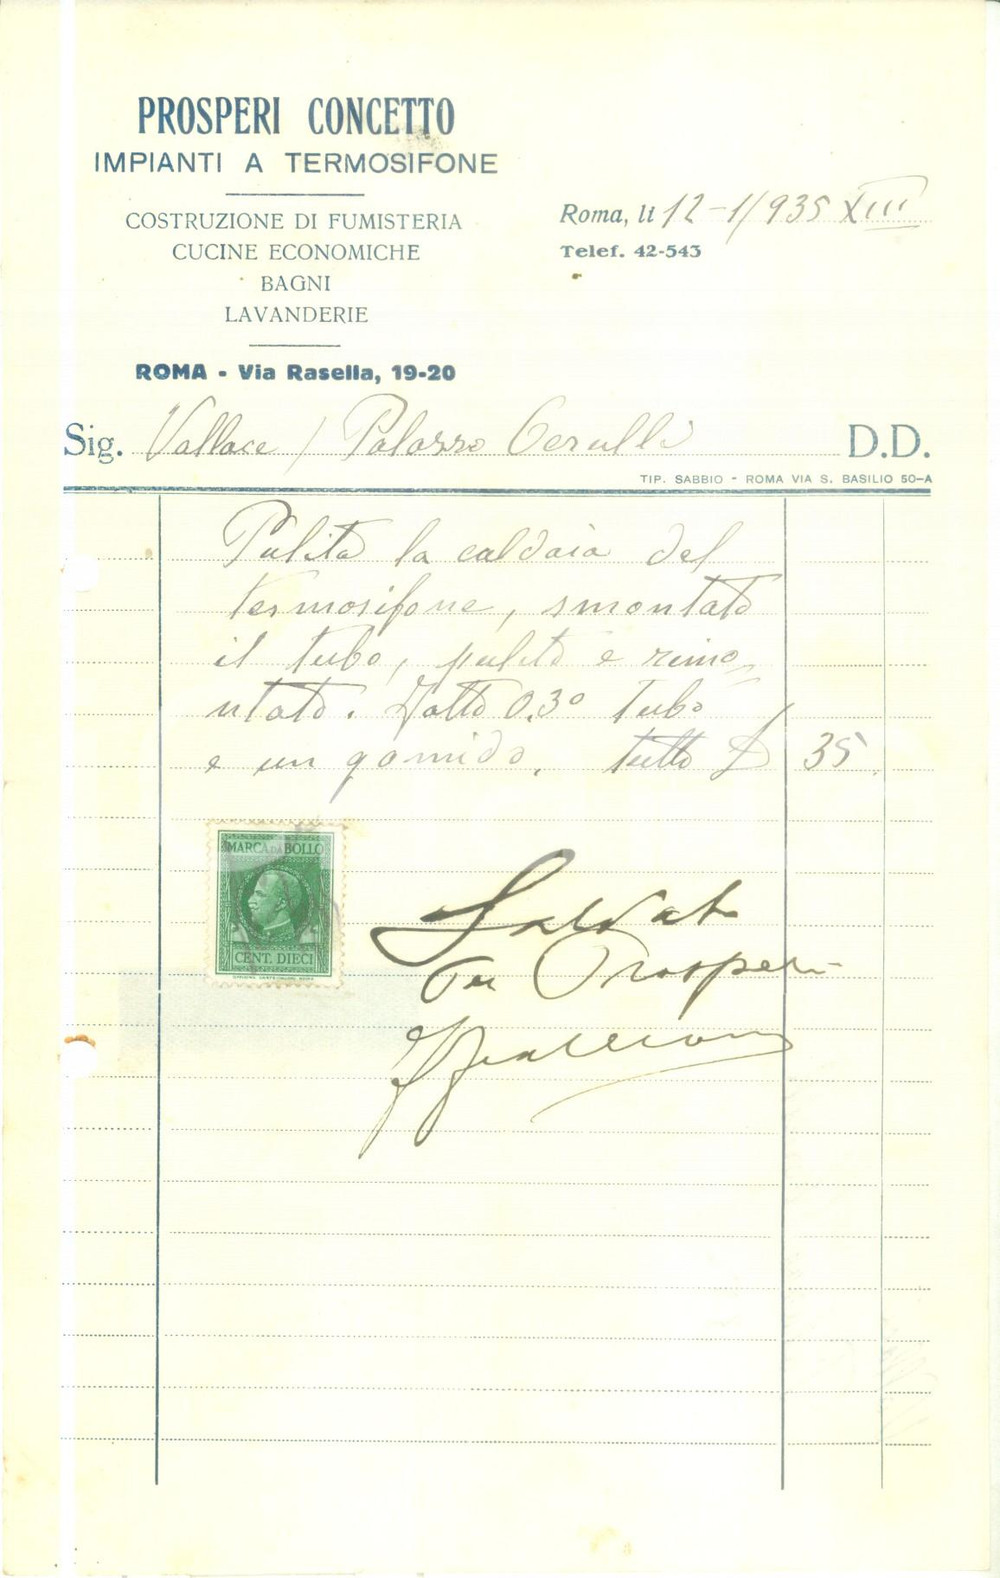 PROSPERI CONCETTO
IMPIANTI A TERMOSIFONE
COSTRUZIONE DI FUMISTERIA
CUCINE ECONOMICHE
BAGNI
LAVANDERIE
ROMA - Via Rasella, 19-20
Roma, li 12-1/935 XIII
Telef. 42-543
Sig. Vallace / Palazzo Cerulli D.D.
TIP. SABBIO - ROMA VIA S. BASILIO 50-A
Pulita la caldaia del
termosifone, smontato
il tubo, pulito e rimo
ntato. Fatto 0.30 tubo
e un gomido. tutto £ 35
MARCA DA BOLLO
CENT. DIECI
Saldato
Per Prosperi